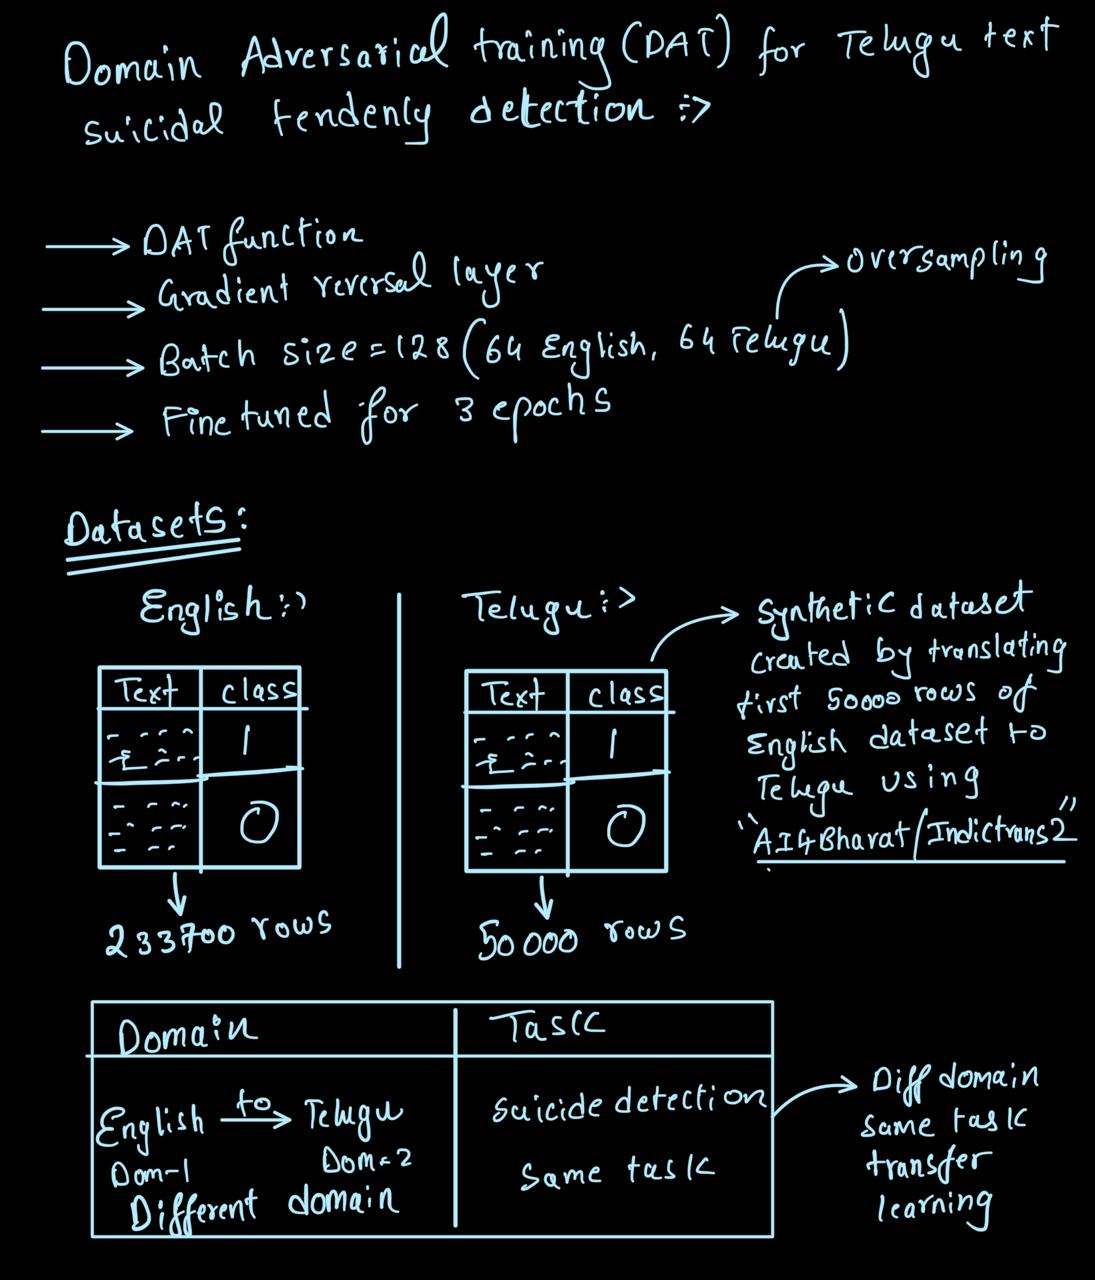 Domain Adversarial training (DAT) for Telugu text
suicidal tendenly detection :->
→ DAT function
→ Gradient reversal layer
→ oversampling
→ Batch size = 128 (64 English, 64 Telugu)
→ Fine tuned for 3 epochs
Datasets:
English :->
Text class
1
0
233700 rows
Telugu :->
Text class
1
0
50000 rows
→ Synthetic dataset
created by translating
first 50000 rows of
English dataset to
Telugu using
"AI4Bharat/Indictrans2"
Domain Task
English to→ Telugu
Dom-1 Dom-2
Different domain
suicide detection
Same task
→ Diff domain
same task
transfer
learning